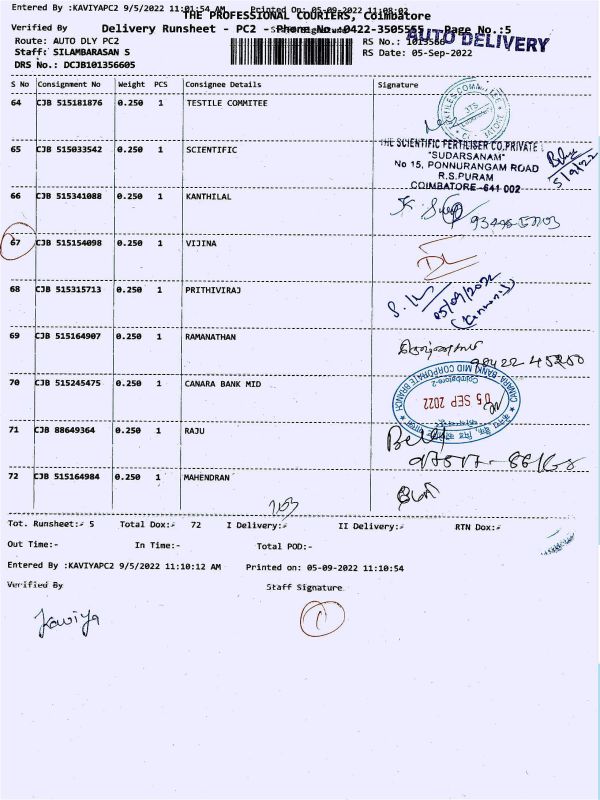 Entered By :KAVIYAPC2 9/5/2022 11:01:54 AM Printed On: 05-09-2022 11:08:02
THE PROFESSIONAL COURIERS, Coimbatore
Verified By Delivery Runsheet - PC2 - Phone No.:0422-3505555 Page No.:5
AUTO DELIVERY
Route: AUTO DLY PC2 RS No.: 1013566
Staff: SILAMBARASAN S RS Date: 05-Sep-2022
DRS No.: DCJB101356605
S No Consignment No Weight PCS Consignee Details Signature
64 CJB 515181876 0.250 1 TESTILE COMMITEE
65 CJB 515033542 0.250 1 SCIENTIFIC
THE SCIENTIFIC FERTILISER CO.PRIVATE
"SUDARSANAM"
No 15, PONNURANGAM ROAD
R.S.PURAM
COIMBATORE-641 002
5/9/22
66 CJB 515341088 0.250 1 KANTHILAL
67 CJB 515154098 0.250 1 VIJINA
DL
68 CJB 515315713 0.250 1 PRITHIVIRAJ
05/09/2022
69 CJB 515164907 0.250 1 RAMANATHAN
70 CJB 515245475 0.250 1 CANARA BANK MID
CANARA BANK MID CORPORATE BRANCH
Coimbatore-2
05 SEP 2022
71 CJB 88649364 0.250 1 RAJU
72 CJB 515164984 0.250 1 MAHENDRAN
Tot. Runsheet:- 5 Total Dox:- 72 I Delivery:- II Delivery:- RTN Dox:-
Out Time:- In Time:- Total POD:-
Entered By :KAVIYAPC2 9/5/2022 11:10:12 AM Printed on: 05-09-2022 11:10:54
Verified By Staff Signature
Kaviya